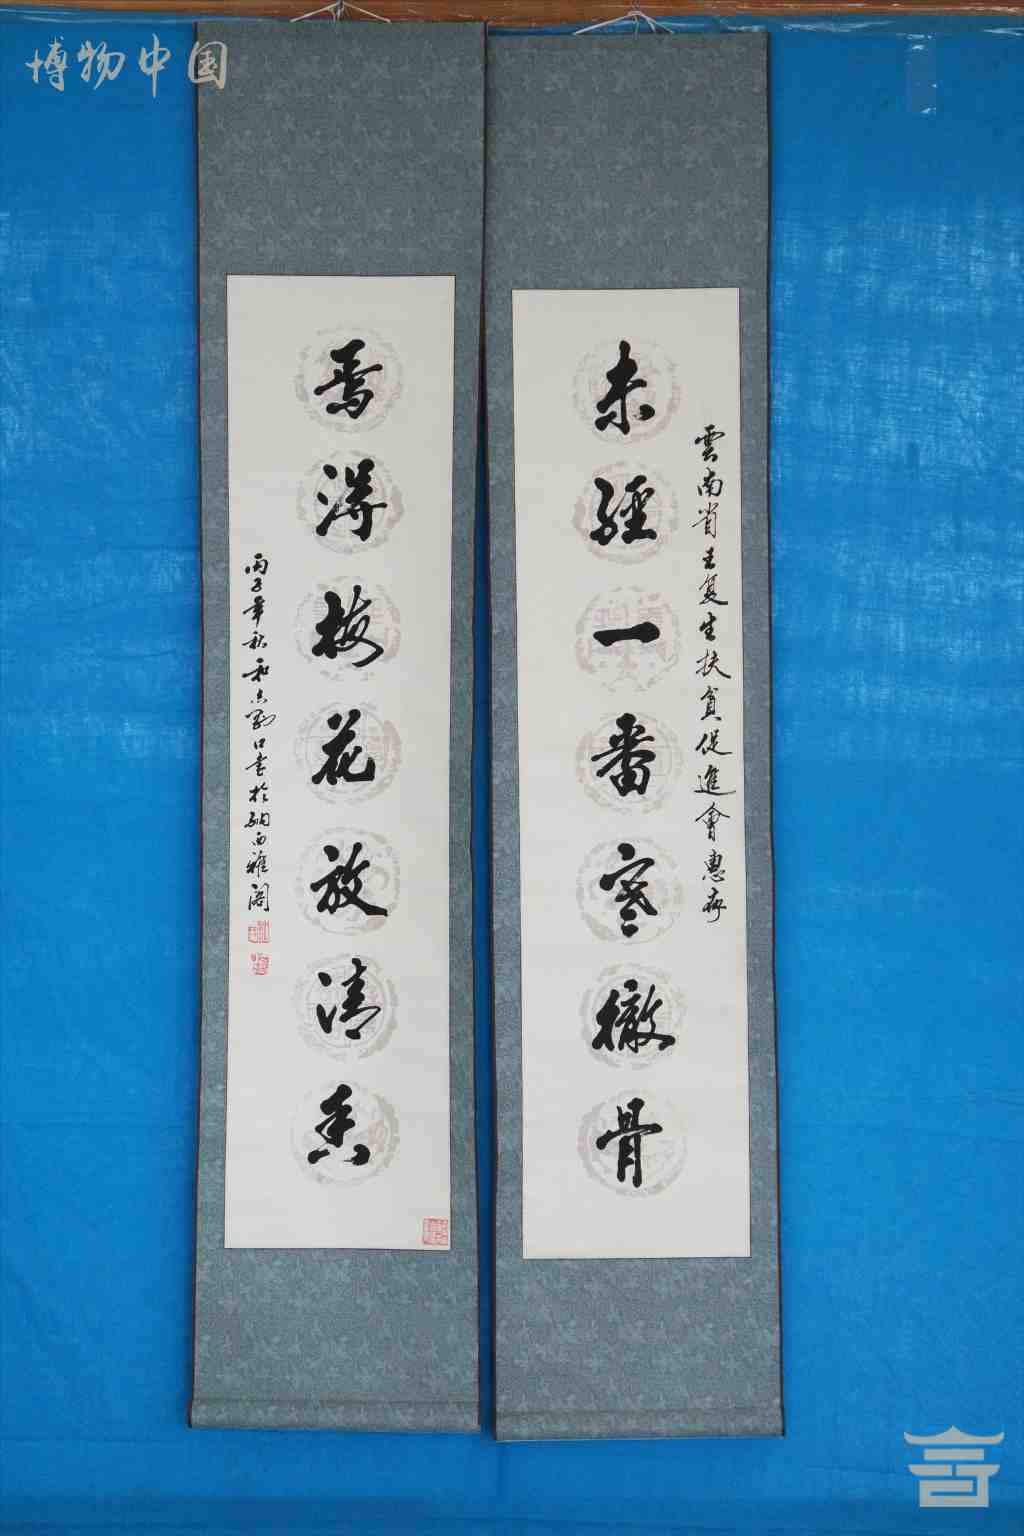 博物中国
雲南省王复生扶貧促進會惠存
未經一番寒徹骨
焉得梅花放清香
丙子年秋和志剛口書於納西雅閣